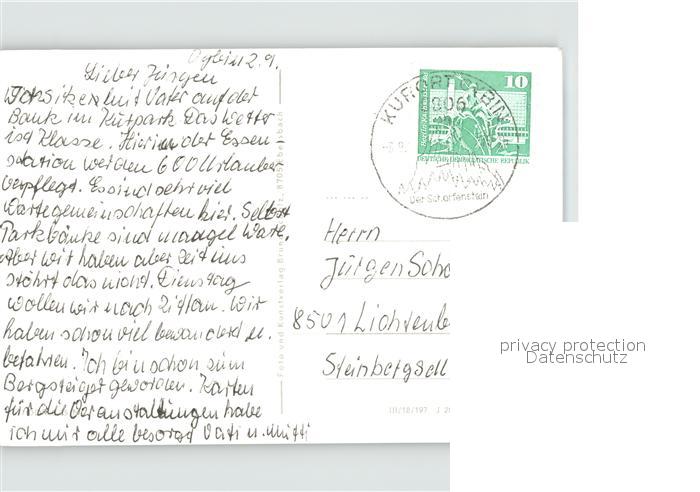 Oybin 2.9.
Lieber Jürgen
Wir sitzen mit Vater auf der
Bank im Kurpark Das Wetter
ist Klasse. Hier in der Essen-
station werden 600 Urlauber
verpflegt. Es sind sehr viel
Wartegemeinschaften hier. Selbst
Parkbänke sind Mangel Ware.
Aber wir haben aber Zeit uns
stöhrt das nicht. Dienstag
wollen wir nach Zittau. Wir
haben schon viel bewandert u.
befahren. Ich bin schon zum
Bergsteiger geworden. Karten
für die Veranstaltungen habe
ich mir alle besorgt Vati u. Mutti
Foto und Kunstverlag
KURORT OYBIN
806
Der Scharfenstein
10
DEUTSCHE DEMOKRATISCHE REPUBLIK
Herrn
Jürgen Scho
8501 Lichtenbe
Steinbergsell
III/18/197
privacy protection
Datenschutz